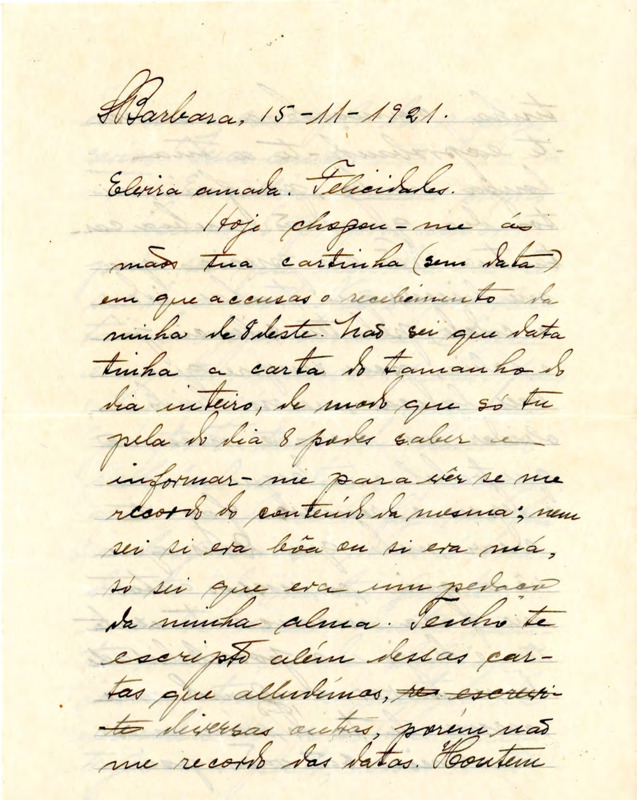 S Barbara, 15-11-1921.
Elvira amada. Felicidades.
Hoje chegou-me ás
mãos tua cartinha (sem data)
em que accusas o recebimento da
minha de 8 deste. Não sei que data
tinha a carta do tamanho do
dia inteiro, de modo que só tu
pela do dia 8 podes saber e
informar-me para vêr se me
recordo do conteúdo da mesma; nem
sei si era bôa ou si era má,
só sei que era um pedaço
da minha alma. Tenho te
escripto além dessas car-
tas que alludimos, re escrevi-
te diversas outras, porém não
me recordo das datas. Hontem